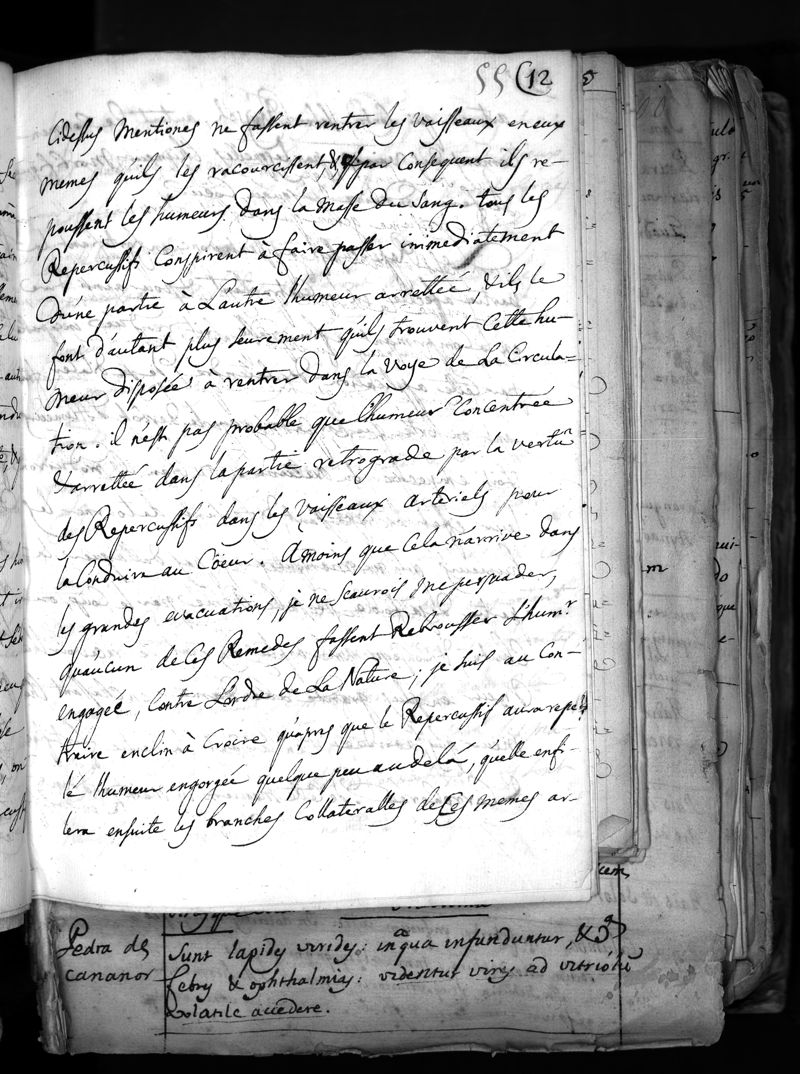 55 (12
Cidessus Mentionés ne fassent rentrer les vaisseaux en eux
memes quils les racourcissent & par Consequent ils re-
poussent les humeurs dans la Masse du Sang. tous les
Repercussifs Conspirent à faire passer immediatement
D'une partie à Lautre lhumeur arrettée, & ils le
font d'autant plus seurement quils trouvent Cette hu-
meur disposée à rentrer dans la Voye de La Circula=
tion. il nest pas probable que lhumeur Concentrée
& arrettée dans la partie retrograde par la vertu
des Repercussifs dans les Vaisseaux arteriels pour
la Conduire au Cöeur. Amoins que Cela narrive dans
les grandes evacuations, je ne Scaurois me persuader,
quaucun de Ces Remedes fassent Rebrousser L'hum.r
engagée, Contre Lordre de La Nature; je suis au Con-
traire enclin à Croire quapres que le Repercussif aura repous
sé lhumeur engorgée quelque peu au delá, quelle enfi-
lera ensuite les branches Collateralles de Ces memes ar-
Pedra de
Cananor
Sunt lapides virides: in aqua infunduntur, &
febres & ophthalmias: videntur vires ad vitriolū
Volatile accedere.